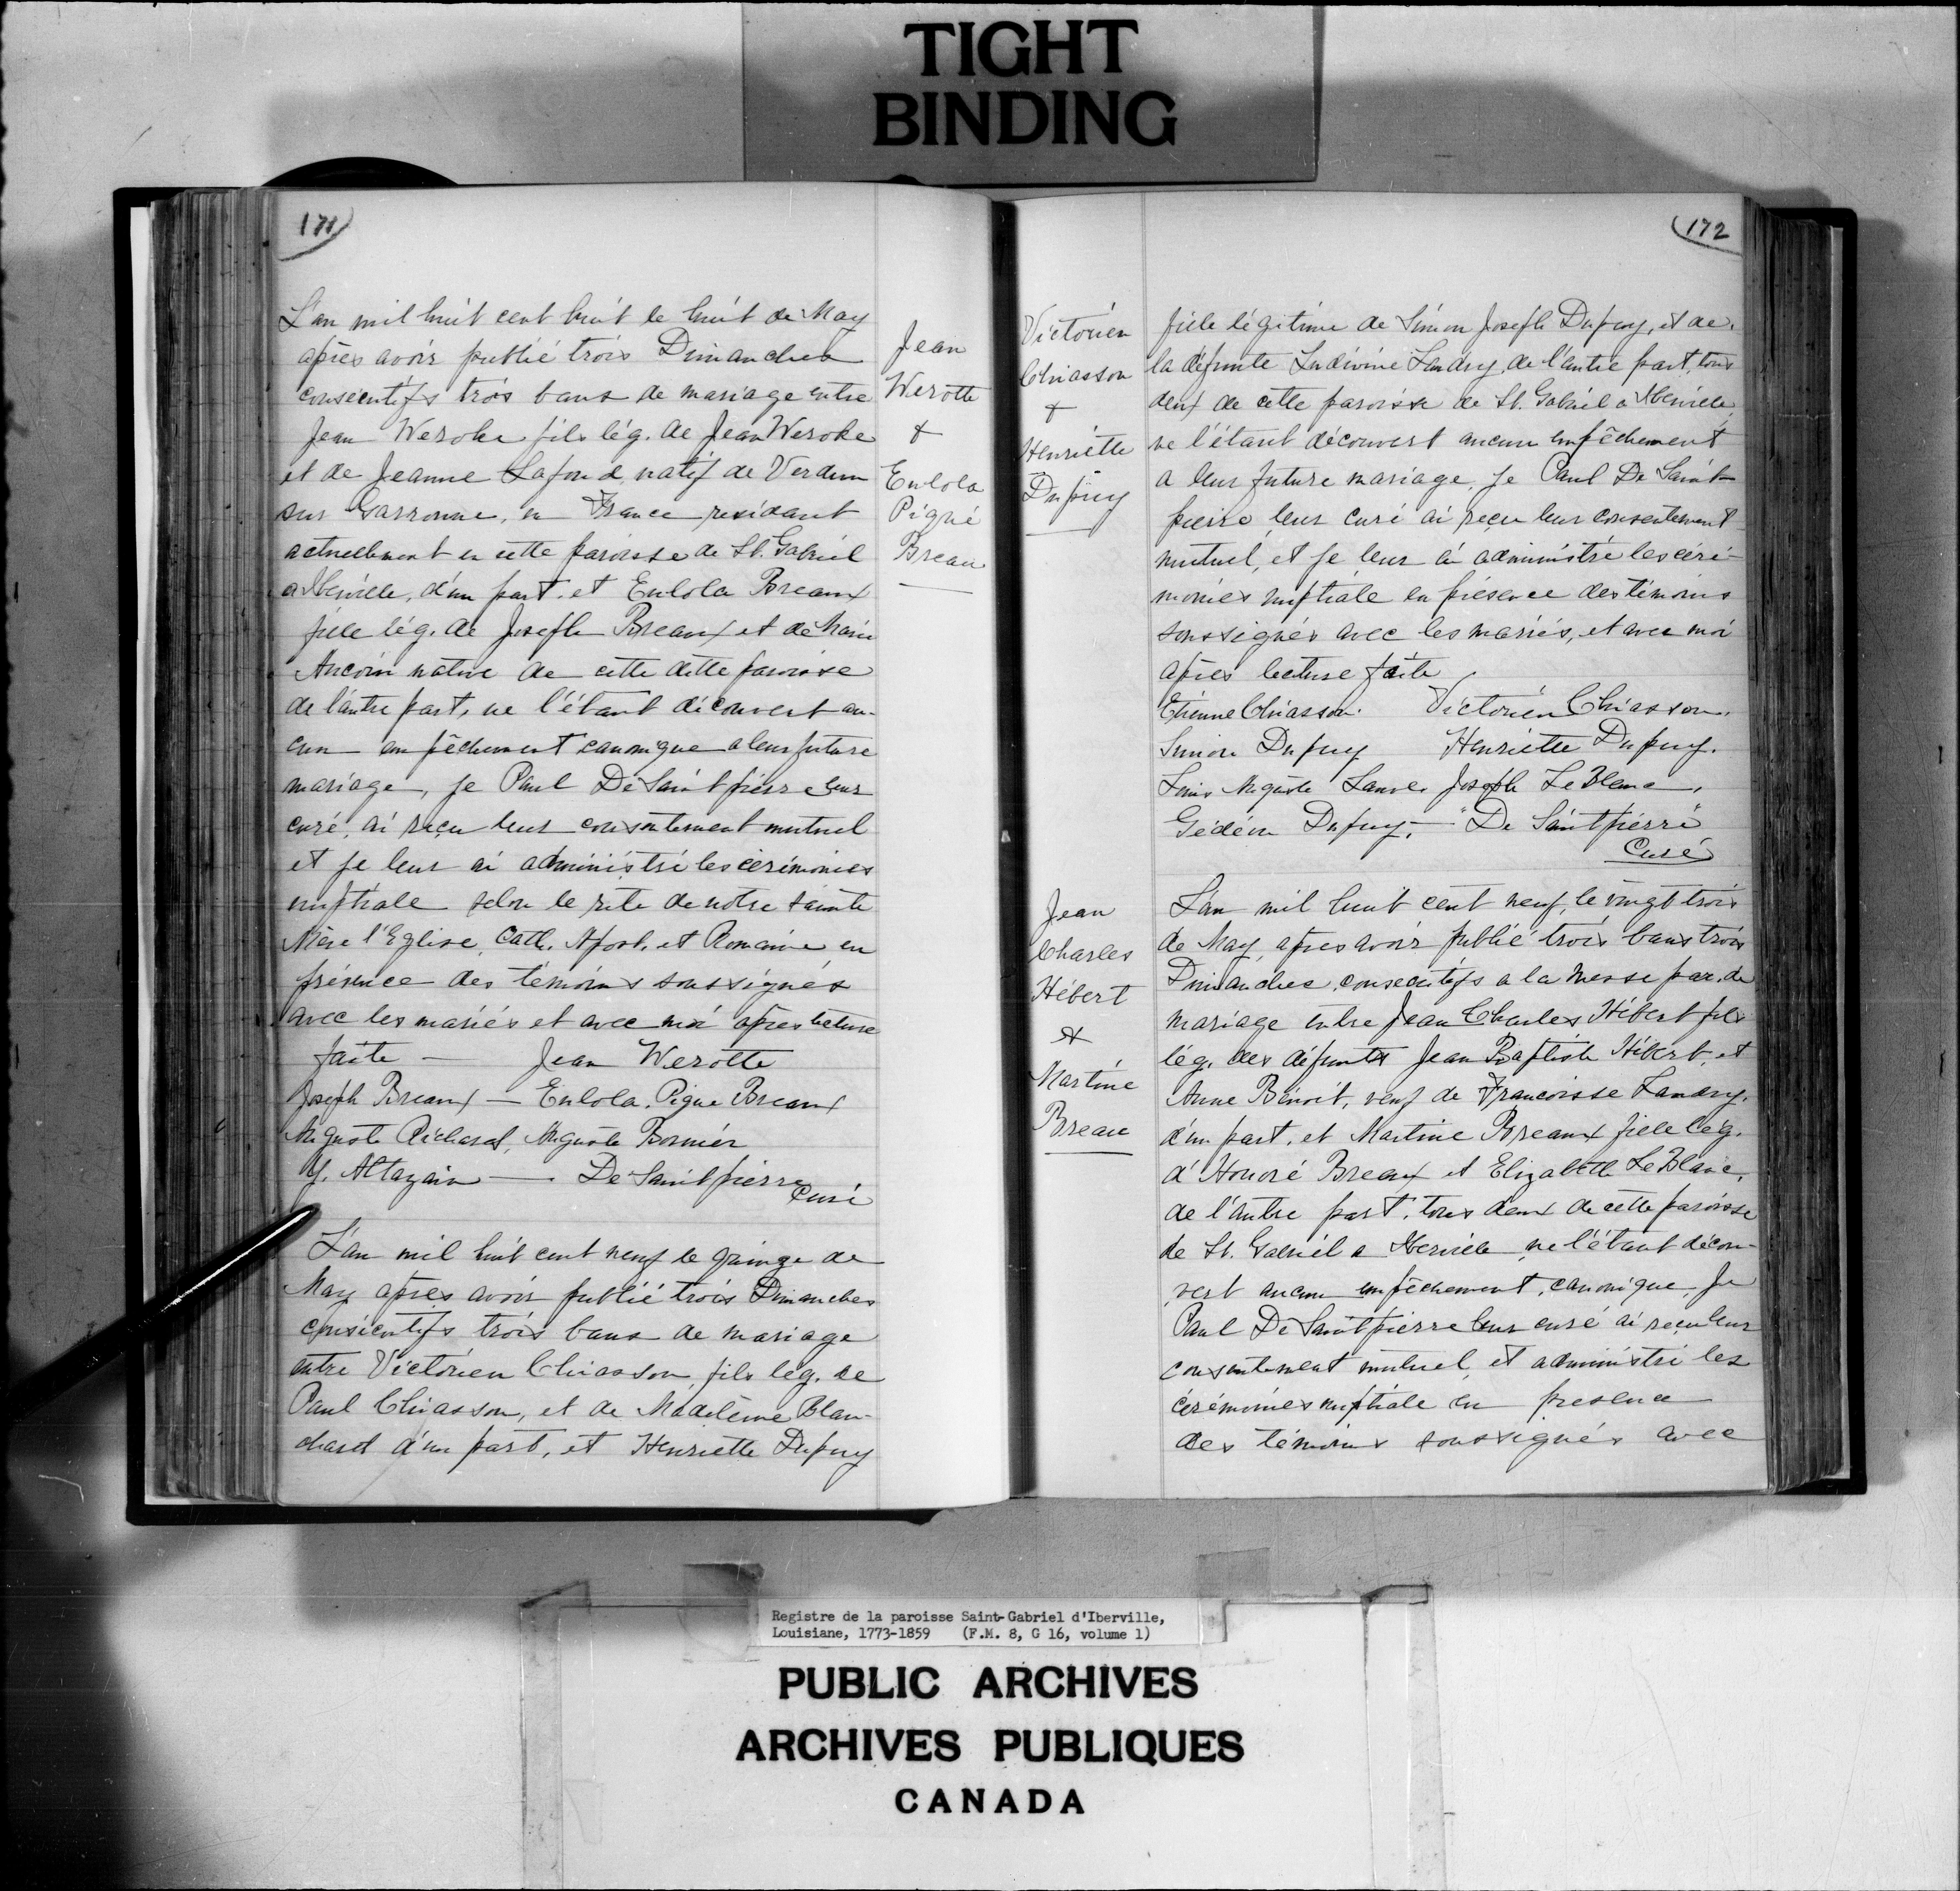 TIGHT
BINDING
171
L'an mil huit cent huit le huit de May
après avoir publié trois Dimanches
consécutifs trois bans de mariage entre
Jean Weroke fils lég. de Jean Weroke
et de Jeanne Lafond, natif de Verdun
sur Garronne, en France residant
actuellement en cette paroisse de St. Gabriel
a Iberville, d'un part. et Eulola Breaux
fille lég. de Joseph Breaux et de Marie
Ancoin native de cette ditte paroisse
de l'autre part, ne l'étant découvert au-
cun empêchement canonique a leur future
mariage, je Paul De Saintpierre leur
curé, ai reçu leur consentement mutuel
et je leur ai administré les cérémonies
nuptiale selon le rite de notre sainte
Mère l'Eglise, Cath. Apost. et Romaine en
présence des témoins soussignés
avec les mariés et avec moi après lecture
faite — Jean Werotte
Joseph Breaux — Eulola. Pigne Breaux
Auguste Richard, Auguste Bormier
Y. Altazain — De Saintpierre
Curé
L'an mil huit cent neuf le quinze de
May après avoir publié trois Dimanches
consécutifs trois bans de mariage
entre Victorien Chiasson, fils lég. de
Paul Chiasson, et de Madeleine Blan-
chard d'un part, et Henriette Dupuy
Jean
Werotte
&
Eulola
Pigné
Breau
172
Victorien
Chiasson
+
Henriette
Dupuy
fille légitime de Simon Joseph Dupuy, et de
la défunte Ludivine Landry, de l'autre part, tous
deux de cette paroisse de St. Gabriel a Iberville,
ne l'étant découvert aucun empêchement
a leur future mariage, je Paul De Saint-
pierre leur curé ai reçu leur consentement
mutuel, et je leur ai administré les céré-
monies nuptiale en présence des témoins
soussignés avec les mariés, et avec moi
après lecture faite
Etienne Chiasson. Victorien Chiasson.
Simon Dupuy Henriette Dupuy.
Louis Auguste Lanve. Joseph LeBlanc,
Gédéon Dupuy, — "De Saintpierre"
Curé
Jean
Charles
Hébert
&
Martine
Breau
L'an mil huit cent neuf, le vingt trois
de May, apres avoir publié trois bans trois
Dimanches consecutifs a la messe par. de
mariage entre Jean Charles Hébert fils
lég. des défunts Jean Baptiste Hébert, et
Anne Benoit, veuf de Francoisse Landry.
d'un part. et Martine Breaux fille leg.
d'Honoré Breaux et Elizabeth LeBlanc,
de l'autre part, tous deux de cette paroisse
de St. Gabriel a Iberville ne l'étant décou-
vert aucun empêchement, canonique, je
Paul De Saintpierre leur curé ai reçu leur
consentement mutuel, et administré les
cérémonies nuptiale en presence
des témoins soussignés avec
Registre de la paroisse Saint-Gabriel d'Iberville,
Louisiane, 1773-1859 (F.M. 8, G 16, volume 1)
PUBLIC ARCHIVES
ARCHIVES PUBLIQUES
CANADA